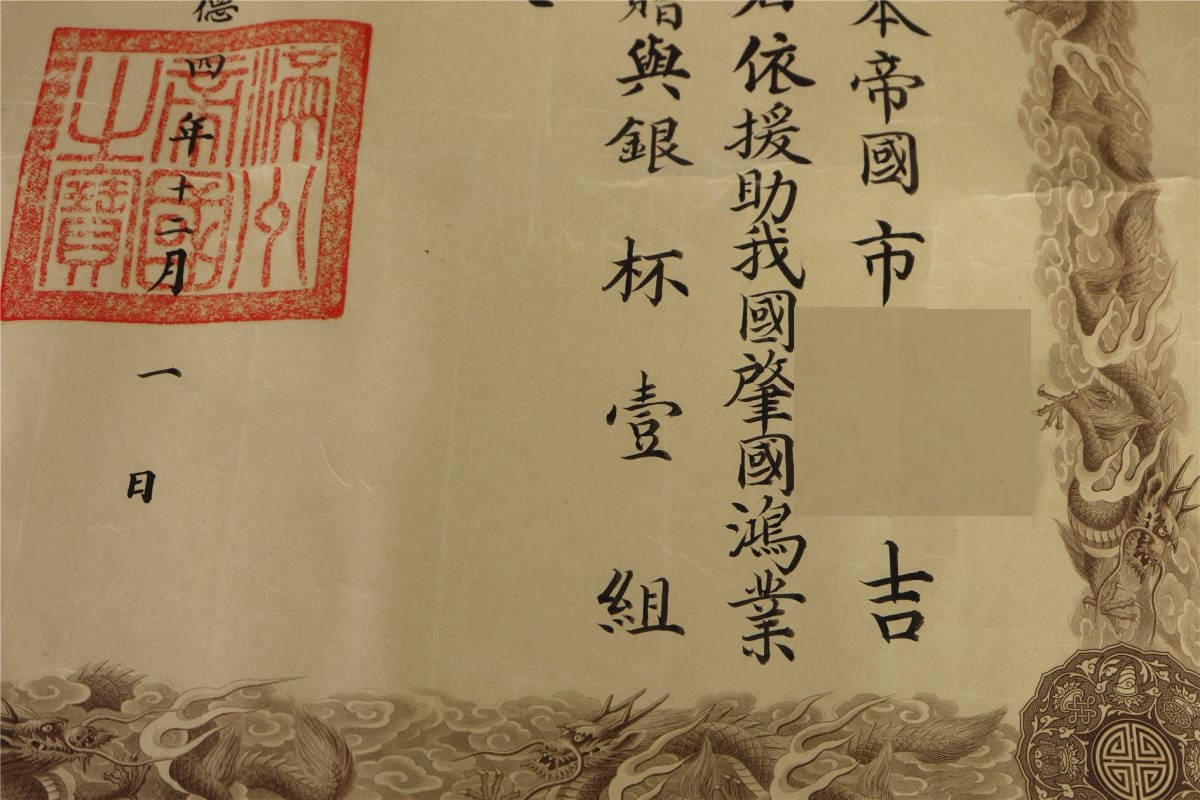 本帝國市 吉
依援助我國肇國鴻業
贈與銀杯壹組
德四年十二月一日
滿洲
帝國
之寶